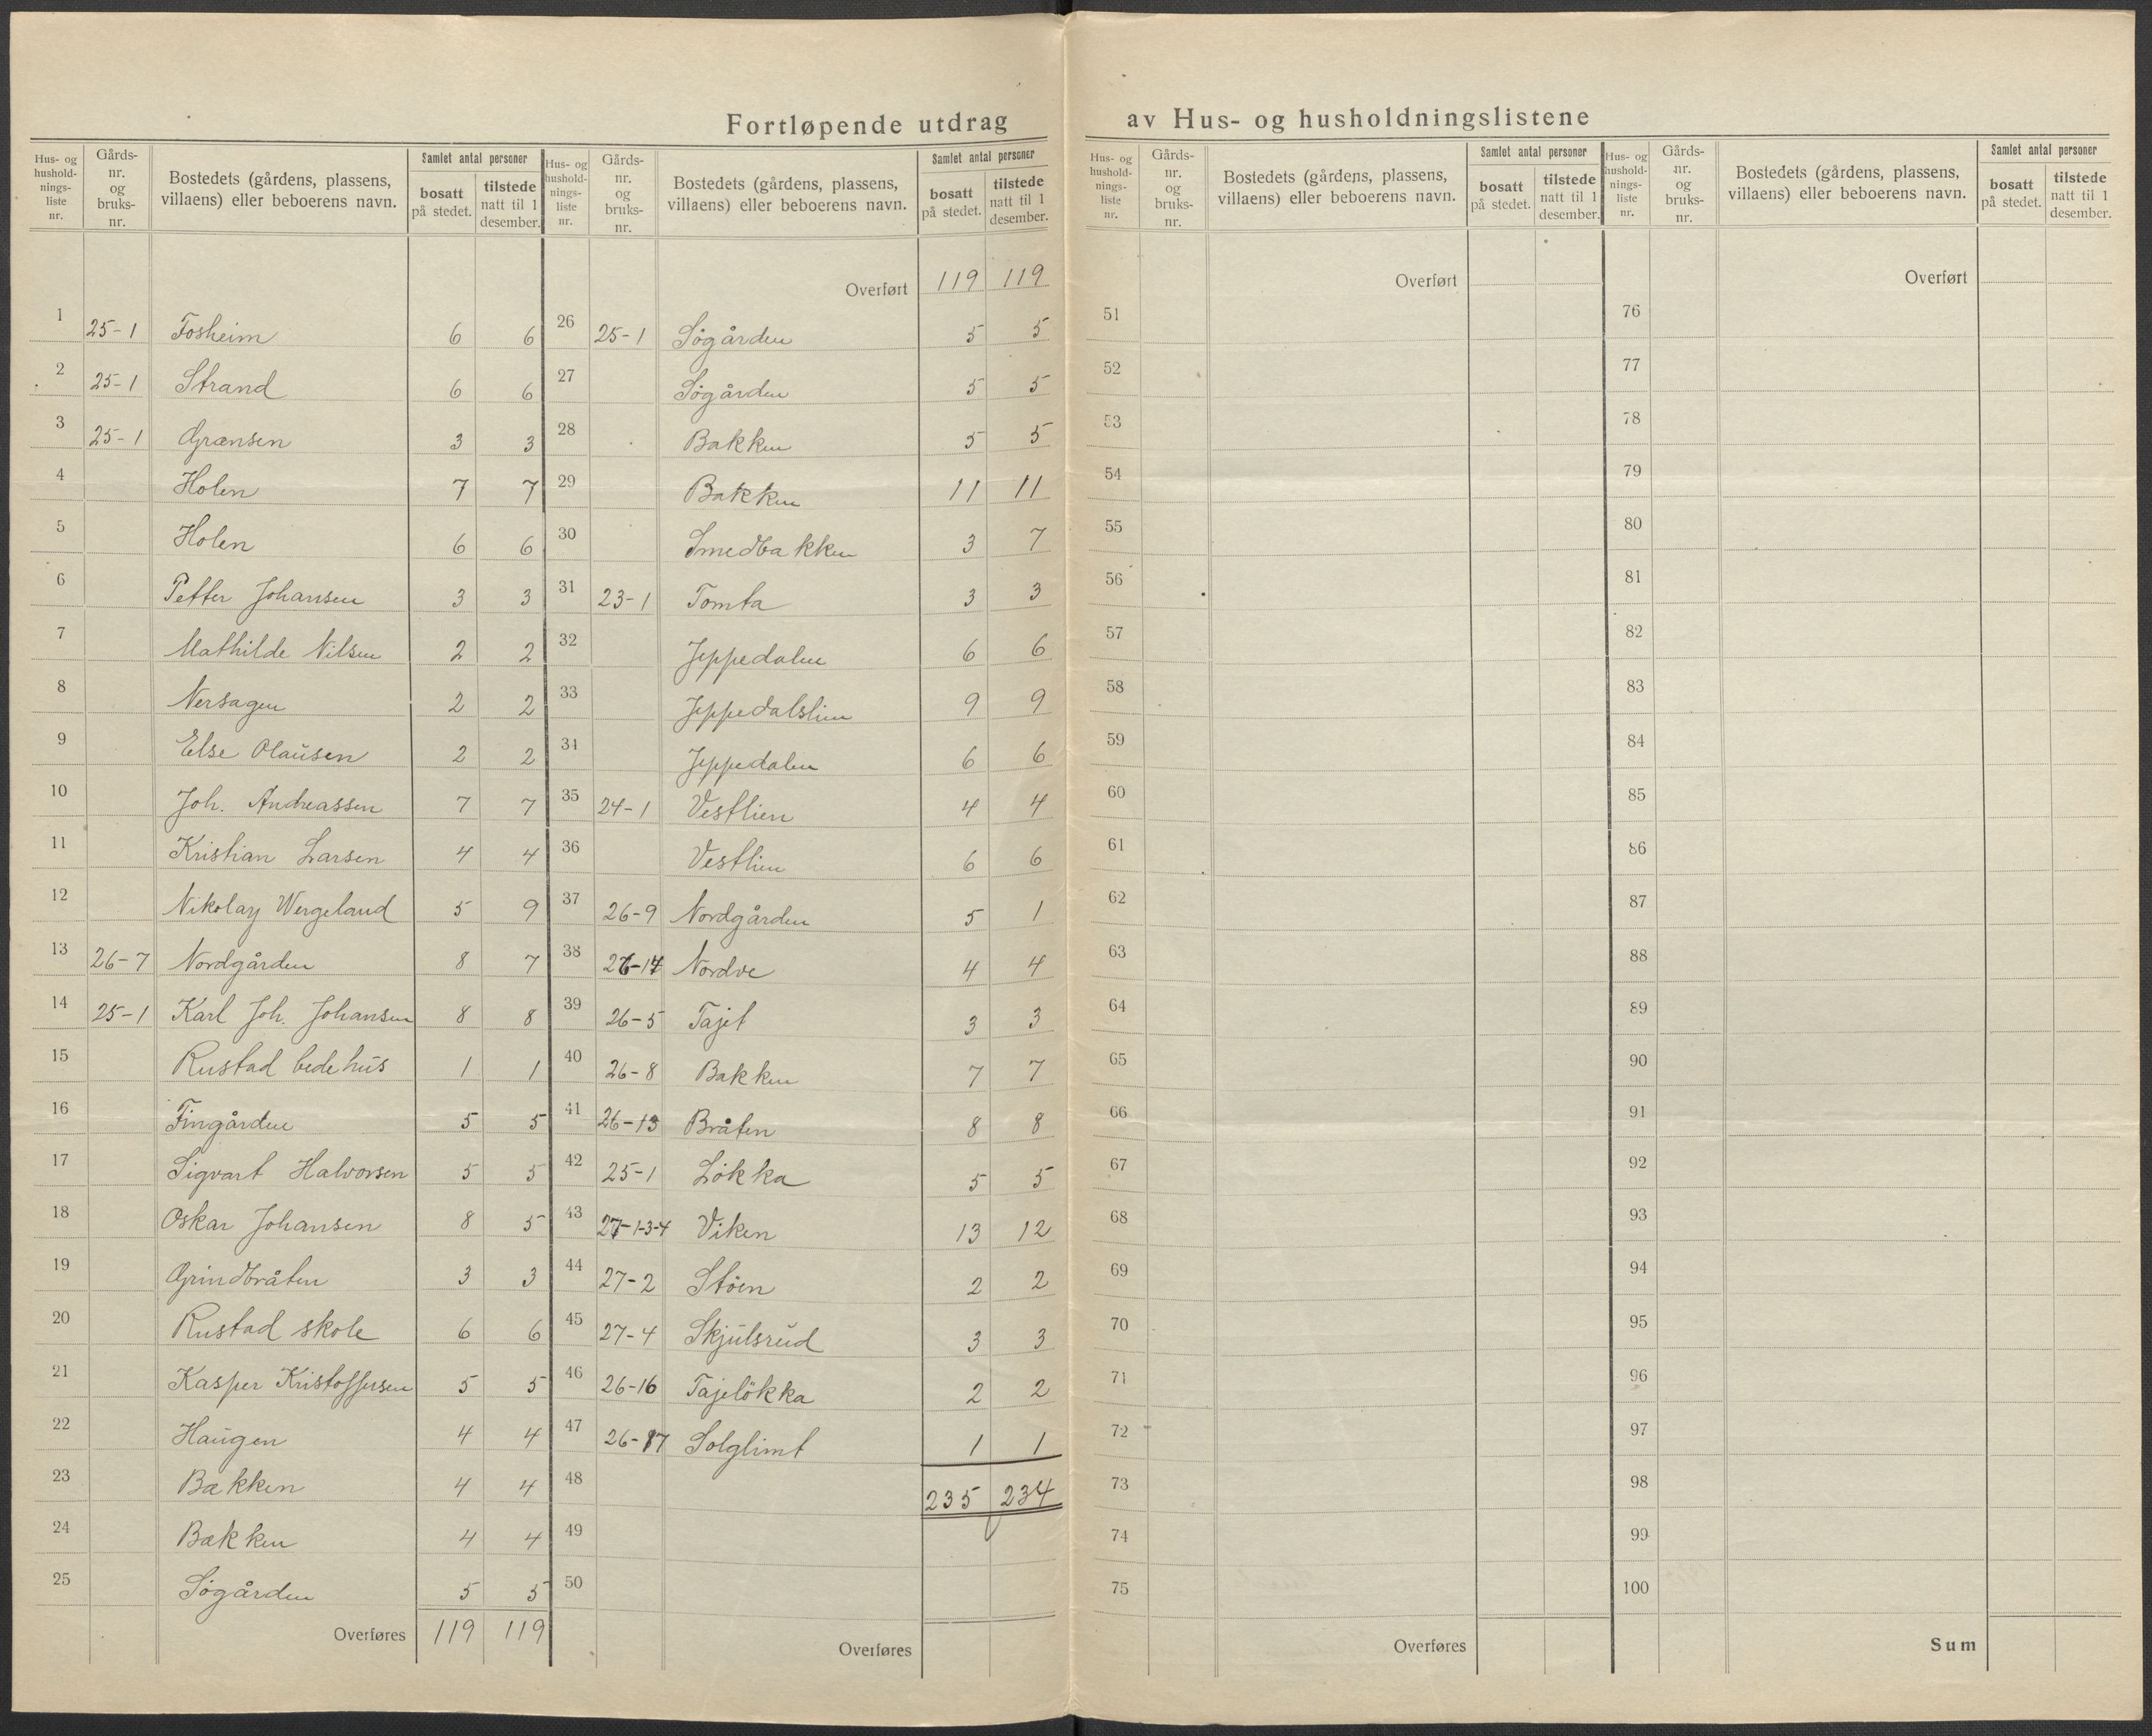 Fortløpende utdrag av Hus- og husholdningslistene
Hus- og hushold-nings-liste nr. Gårds-nr. og bruks-nr. Bostedets (gårdens, plassens, villaens) eller beboerens navn. Samlet antal personer bosatt på stedet. tilstede natt til 1 desember.
1 25-1 Fosheim 6 6
2 25-1 Strand 6 6
3 25-1 Grænsen 3 3
4 Holen 7 7
5 Holen 6 6
6 Petter Johansen 3 3
7 Mathilde Nilsen 2 2
8 Nersagen 2 2
9 Else Olausen 2 2
10 Joh. Andreassen 7 7
11 Kristian Larsen 4 4
12 Nikolay Wergeland 5 9
13 26-7 Nordgården 8 7
14 25-1 Karl Joh. Johansen 8 8
15 Rustad bedehus 1 1
16 Fingården 5 5
17 Sigvart Halvorsen 5 5
18 Oskar Johansen 8 5
19 Grindbråten 3 3
20 Rustad skole 6 6
21 Kasper Kristoffersen 5 5
22 Haugen 4 4
23 Bakken 4 4
24 Bakken 4 4
25 Søgården 5 5
Overføres 119 119
Hus- og hushold-nings-liste nr. Gårds-nr. og bruks-nr. Bostedets (gårdens, plassens, villaens) eller beboerens navn. Samlet antal personer bosatt på stedet. tilstede natt til 1 desember.
Overført 119 119
26 25-1 Søgården 5 5
27 Søgården 5 5
28 Bakken 5 5
29 Bakken 11 11
30 Smedbakken 3 7
31 23-1 Tomta 3 3
32 Jeppedalen 6 6
33 Jeppedalslien 9 9
34 Jeppedalen 6 6
35 24-1 Vestlien 4 4
36 Vestlien 6 6
37 26-9 Nordgården 5 1
38 26-14 Nordve 4 4
39 26-5 Tajet 3 3
40 26-8 Bakken 7 7
41 26-13 Bråten 8 8
42 25-1 Løkka 5 5
43 27-1-3-4 Viken 13 12
44 27-2 Støen 2 2
45 27-4 Skjulsrud 3 3
46 26-16 Tajeløkka 2 2
47 26-17 Solglimt 1 1
48 235 234
49
50
Overføres
Hus- og hushold-nings-liste nr. Gårds-nr. og bruks-nr. Bostedets (gårdens, plassens, villaens) eller beboerens navn. Samlet antal personer bosatt på stedet. tilstede natt til 1 desember.
Overført
51
52
53
54
55
56
57
58
59
60
61
62
63
64
65
66
67
68
69
70
71
72
73
74
75
Overføres
Hus- og hushold-nings-liste nr. Gårds-nr. og bruks-nr. Bostedets (gårdens, plassens, villaens) eller beboerens navn. Samlet antal personer bosatt på stedet. tilstede natt til 1 desember.
Overført
76
77
78
79
80
81
82
83
84
85
86
87
88
89
90
91
92
93
94
95
96
97
98
99
100
Sum